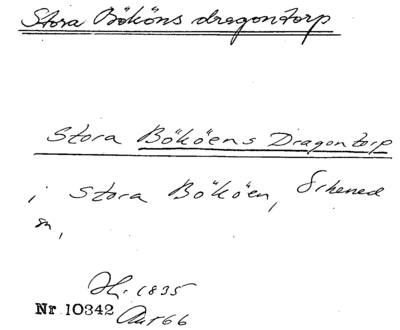 Stora Bököns dragontorp
Stora Bököens Dragontorp
i Stora Bököen, Skened
sn,
Hf. 1835
Nr 10342 Aur 66